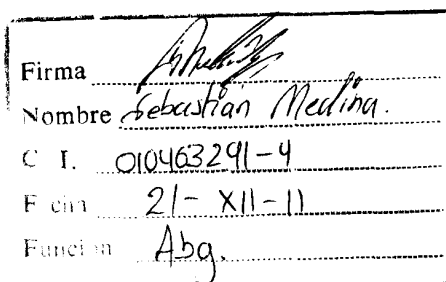 Firma
Nombre Sebastián Medina.
C I. 010463291-4
F cha 21- XII-11
Funci n Abg.